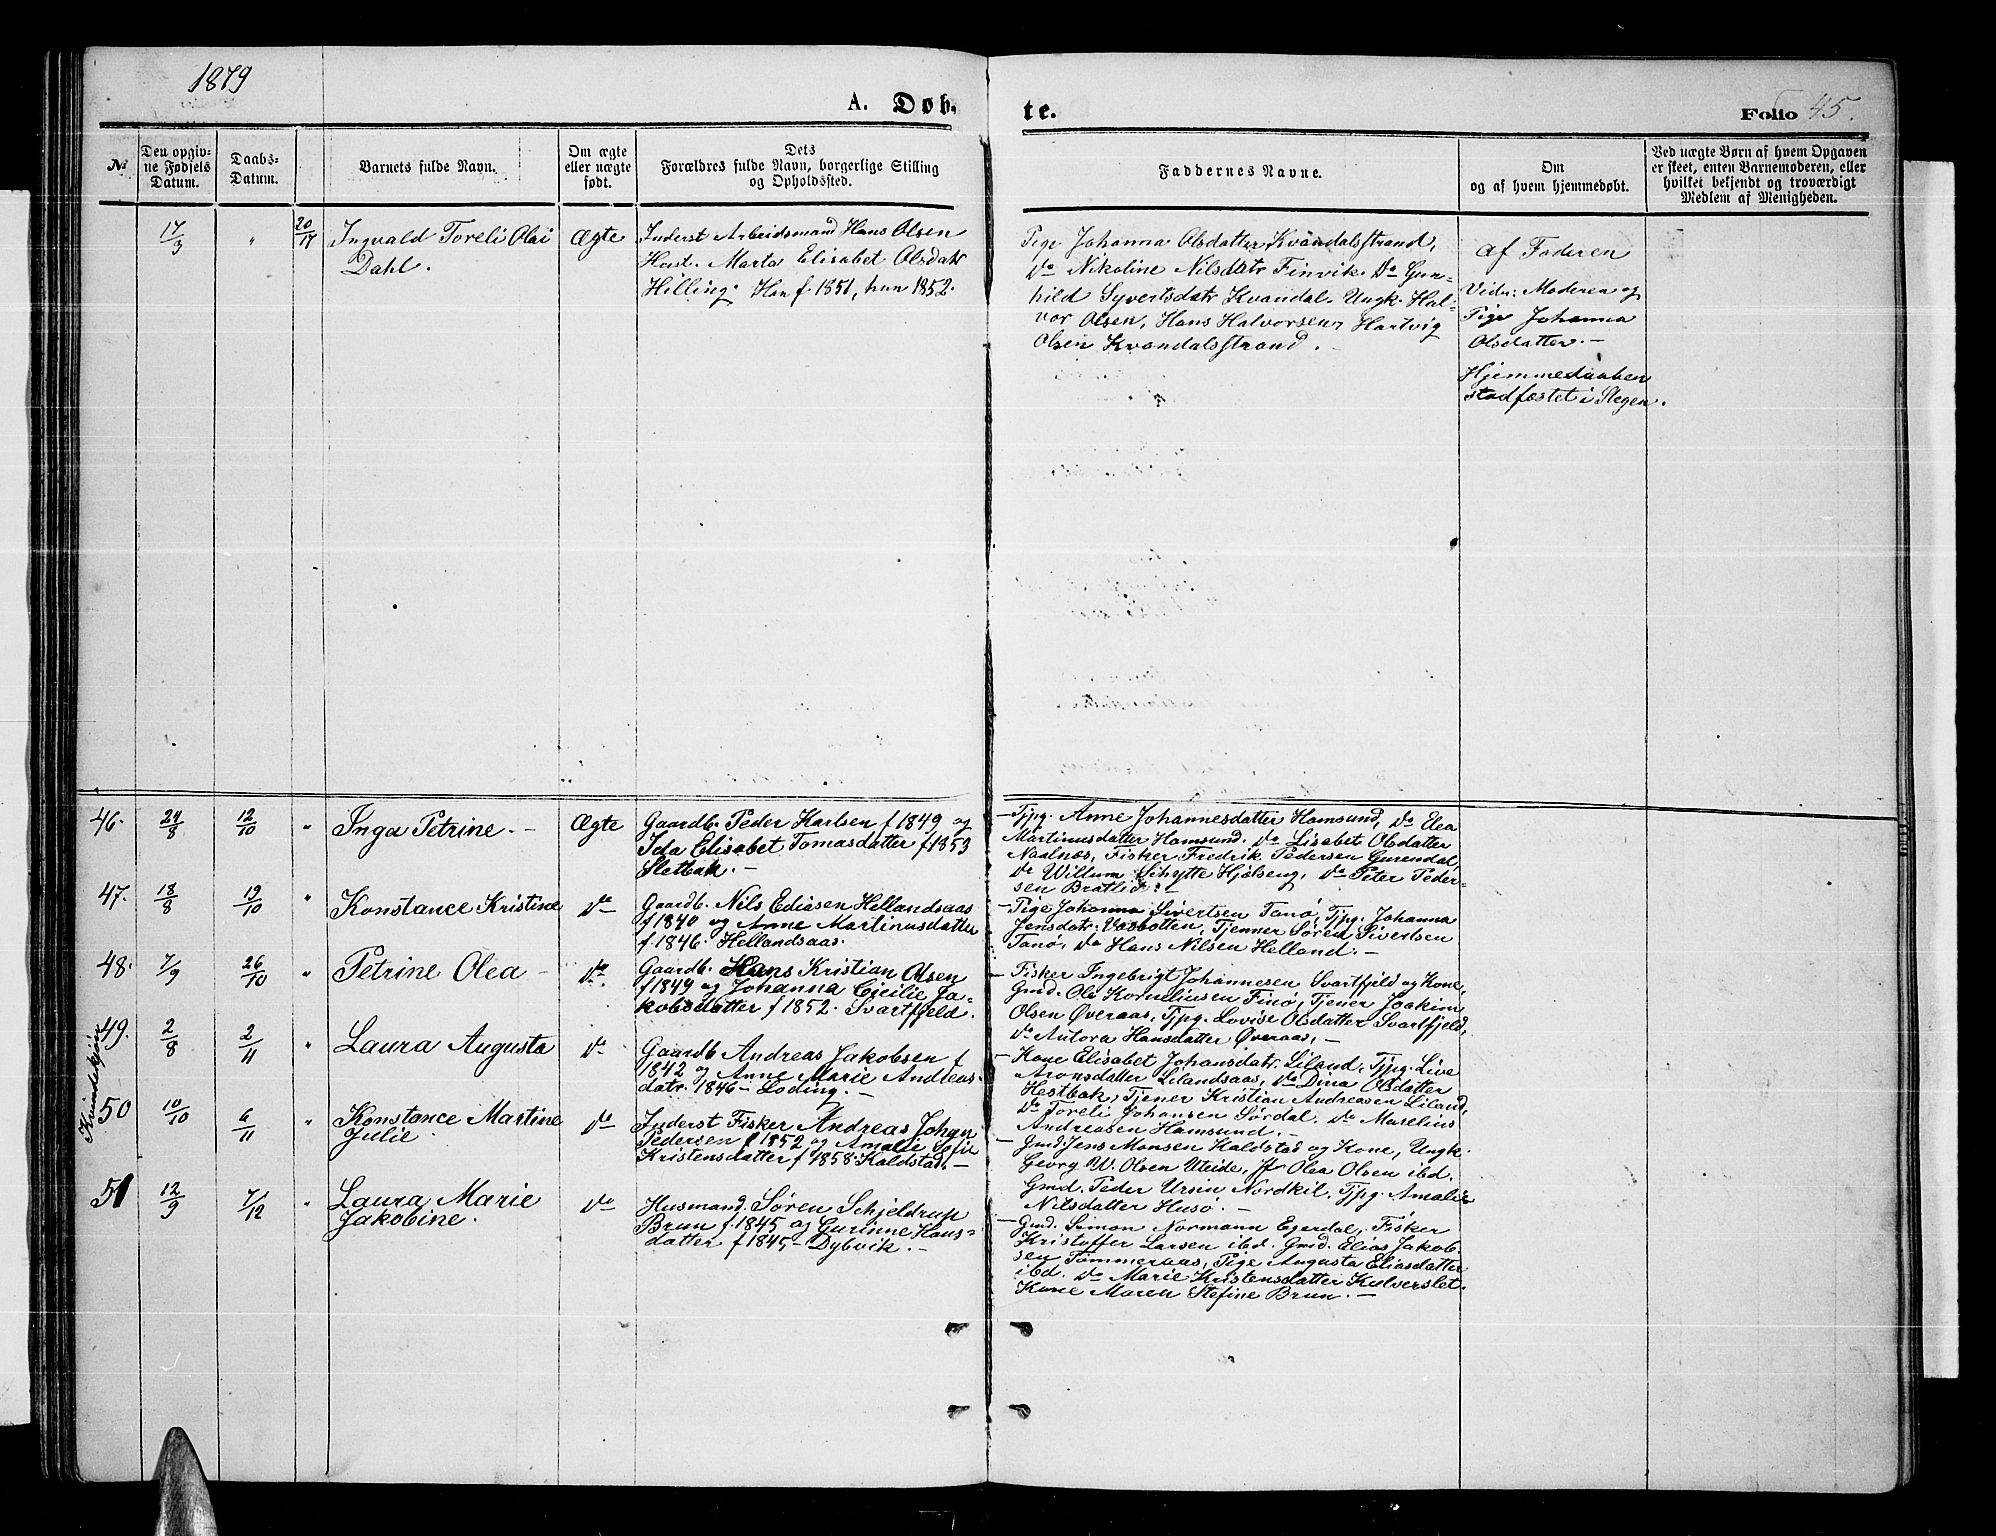 1879
A. Døb-
te.
Folio 45.
No
Den opgiv-
ne Fødsels
Datum.
Daabs-
Datum.
Barnets fulde Navn.
Om ægte
eller uægte
født.
Dets
Forældres fulde Navn, borgerlige Stilling
og Opholdssted.
Faddernes Navne.
Om
og af hvem hjemmedøbt.
Ved uægte Børn af hvem Opgaven
er skeet, enten Barnemoderen, eller
hvilket bekjendt og troværdigt
Medlem af Menigheden.
17/3 " 20/17 Ingvald Toreli Olai
Dahl.
Ægte
Inderst Arbeidsmand Hans Olsen
Hust. Marta Elisabet Olsdatr
Hilling. Han f 1851, hun 1852.
Pige Johanna Olsdatter Kvandalsstrand,
do Nikoline Nilsdatr Finvik. Do Gun-
hild Syvertsdatr Kvandal. Ungk. Hal-
vor Olsen, Hans Halvorsen, Hartvig
Olsen Kvandalsstrand.
af Faderen
Vidn: Moderen og
Pige Johanna
Olsdatter.-
Hjemmedaaben
stadfæstet i Stegen.
Kvindekjøn
46. 24/8 12/10 " Inga Petrine.-
Ægte
Gaardb. Peder Karlsen f 1849 og
Ida Elisabet Tomasdatter f 1853
Sletbak.-
- Tjpg. Anne Johannesdatter Hamsund, do Elea
Martinusdatter Hamsund. do Lisabet Olsdatter
Naalnæs, Fisker Fredrik Pedersen Gurendal,
do Willum Schytte Hjelseng, do Peter Peder-
sen Bratlid.-
47. 18/8 19/10 " Konstance Kristine
do
Gaardb. Nils Ediasen Hellandsaas
f 1840 og Anne Martinusdatter
f. 1846. Hellandsaas.
- Pige Johanna Sivertsen Tanø, Tjpg. Johanna
Jensdatr. Vasbotten, Tjenner Søren Sivertsen
Tanø, do Hans Nilsen Helland.-
48. 7/9 26/10 " Petrine Olea -
do.
Gaardb. Hans Kristian Olsen
f 1849 og Johanna Cicilie Ja-
kobsdatter f 1852. Svartfjeld.
- Fisker Ingebrigt Johannesen Svartfjeld og Kone,
Gmd. Ole Korneliusen Finø, Tjener Joakim
Olsen Øveraas, Tjpg. Lovise Olsdatter Svartfjeld,
do Autora Hansdatter Øveraas,-
49. 2/8 2/11 " Laura Augusta
do
Gaardb Andreas Jakobsen f
1842 og Anne Marie Andreas-
datr. 1846 - Loding.-
- Kone Elisabet Johansdatr. Liland, Tjpg. Live
Aronsdatter Lilandsaas, do Dina Olsdatter
Hestbak, Tjener Kristian Andreasen Liland,
do Toreli Johansen Sørdal, do Maselius
Andreasen Hamsund.-
50 10/10 6/11 " Konstance Martine
Julie.
do
Inderst Fisker Andreas Johan
Pedersen f 1852 og Amalie Sofie
Kristensdatter f 1858. Kaldstad.-
- Gmd. Jens Monsen Kaldstad og Kone, Ungk.
Georg W. Olsen Uteide, Olea Olsen ibd.
Gmd. Peder Ursin Nordkil, Tjpg. Amalie
Nilsdatter Husø.-
51 12/9 7/12 " Laura Marie
Jakobine.
do
Husmand. Søren Schjeldrup
Brun f. 1845 og Gurinne Hans-
datter f 1845,- Dybvik.-
- Gmd. Simon Normann Egerdal, Fisker
Kristoffer Larsen ibd. Gmd. Elias Jakob-
sen Tømmeraas, Pige Augusta Eliasdatter
ibd. do Marie Kristensdatter Kulverslet.
Kone Maren Stefine Brun.-